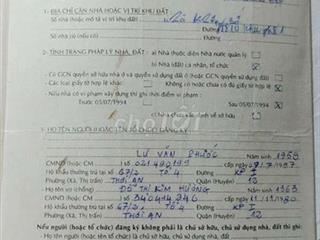 1- ĐỊA CHỈ CĂN NHÀ HOẶC VỊ TRÍ KHU ĐẤT
Số nhà (hoặc mô tả vị trí khu đất)
Số nhà cũ (nếu có) Đường
2- TÌNH TRẠNG PHÁP LÝ NHÀ, ĐẤT - a/ Nhà thuộc diện Nhà nước quản lý
b/ Nhà đất cá nhân, tổ chức
- Có GCN quyền sở hữu nhà ở và quyền sử dụng đất ở (hoặc GCN quyền sử dụng đất)
- Các loại giấy tờ hợp lệ khác: - Có - Không
- Nếu nhà có vi phạm xây dựng thì ghi thời điểm vi phạm:
Trước 05/07/1994 Sau 05/07/1994
3- HỌ TÊN NGƯỜI HOẶC TÊN TỔ CHỨC ĐĂNG KÝ
LƯ VĂN PHƯỚC Năm sinh 1958
CMND (hoặc CM) số 021490195 cấp ngày
Hộ khẩu thường trú tại số 67/2 TỔ 4 Đường KP I
Phường (Xã, Thị trấn) THỚI AN Quận (Huyện) 12
Họ tên vợ (chồng) ĐỖ THỊ KIM HƯƠNG Năm sinh 1963
CMND (hoặc CM) số cấp ngày 11.11.1980
Hộ khẩu thường trú tại số 67/2 TỔ 4 Đường KP I
Phường (Xã, Thị trấn) THỚI AN Quận (Huyện) 12
Nếu người (hoặc tổ chức) đăng ký không phải là chủ sở hữu, chủ sử dụng nhà, đất thì ghi
- Họ tên (hoặc tên tổ chức) là chủ sở hữu, chủ sử dụng nhà, đất